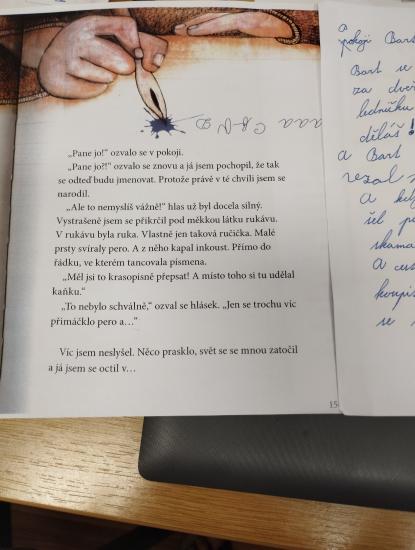 „Pane jo!" ozvalo se v pokoji.
„Pane jo?!" ozvalo se znovu a já jsem pochopil, že tak
se odteď budu jmenovat. Protože právě v té chvíli jsem se
narodil.
„Ale to nemyslíš vážně!" hlas už byl docela silný.
Vystrašeně jsem se přikrčil pod měkkou látku rukávu.
V rukávu byla ruka. Vlastně jen taková ručička. Malé
prsty svíraly pero. A z něho kapal inkoust. Přímo do
řádku, ve kterém tancovala písmena.
„Měl jsi to krasopisně přepsat! A místo toho si tu udělal
kaňku."
„To nebylo schválně," ozval se hlásek. „Jen se trochu víc
přimáčklo pero a…"
Víc jsem neslyšel. Něco prasklo, svět se se mnou zatočil
a já jsem se octil v…
15
a
pokoji Bart
Bart se
za dveř
ledničku
děláš!
a Bart
řezal
A když
šel
skama
A
koupi
se